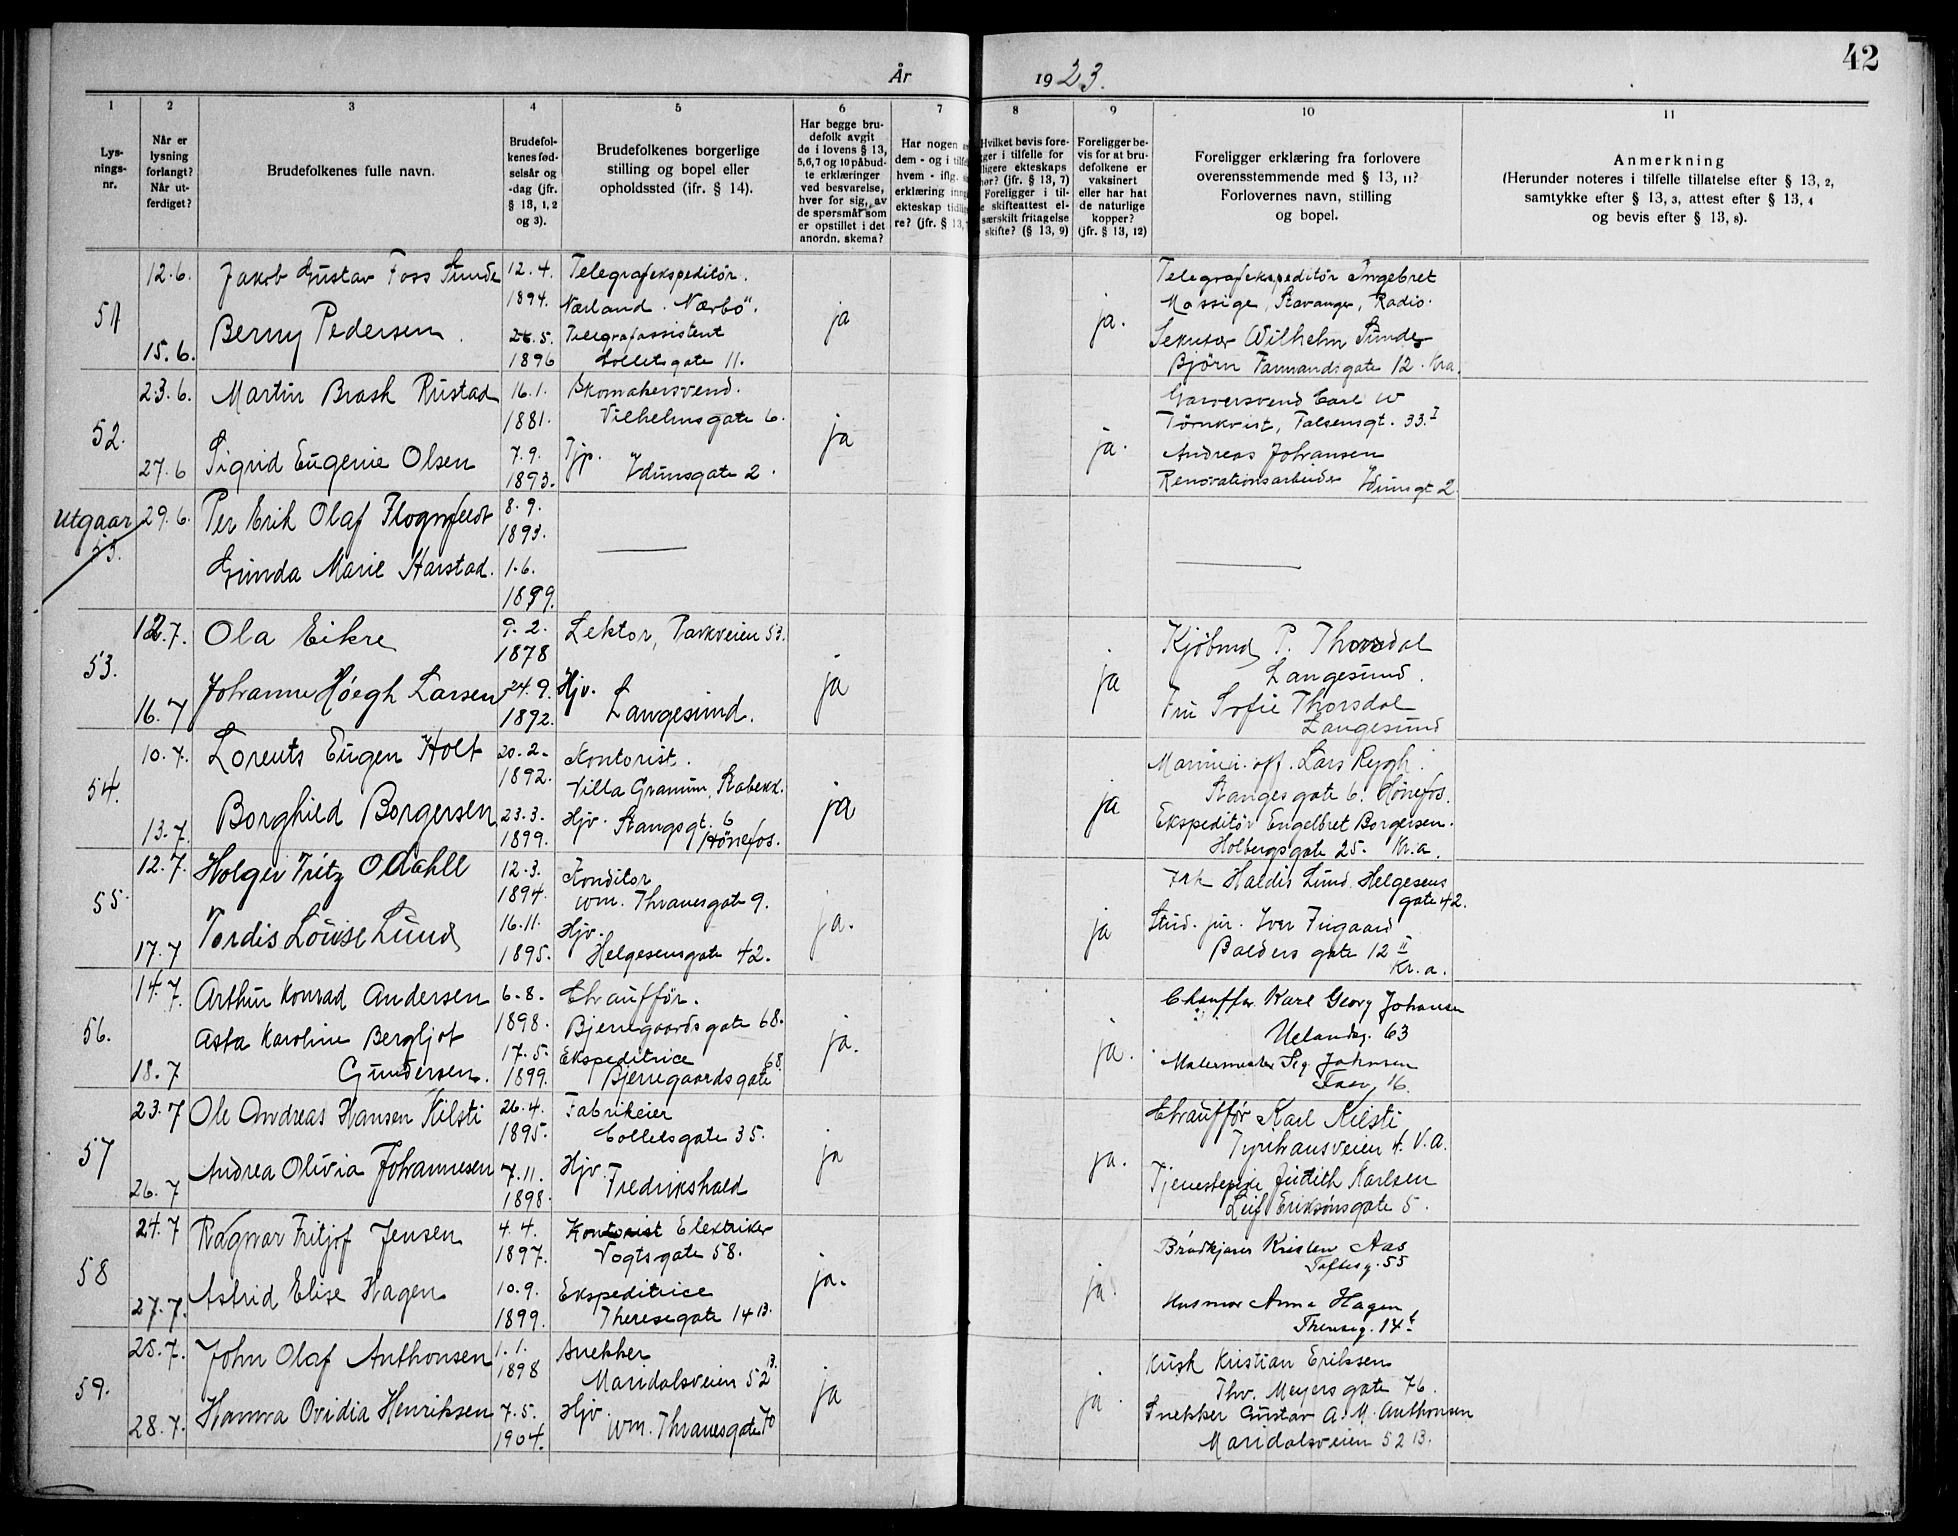 42
År 1923.
1 2 3 4 5 6 7 8 9 10 11
Lys-
nings-
nr.
Når er
lysning
forlangt?
Når ut-
ferdiget?
Brudefolkenes fulle navn.
Brudefol-
kenes fød-
selsår og
-dag (jfr.
§ 13, 1, 2
og 3).
Brudefolkenes borgerlige
stilling og bopel eller
opholdssted (ifr. § 14).
Har begge bru-
defolk avgit
de i lovens § 13,
5,6,7 og 10 påbud-
te erklæringer
ved besvarelse,
hver for sig, av
de spørsmål som
er opstillet i det
anordn. skema?
Har nogen
dem - og i tilfe
hvem - iflg.
erklæring inng
ekteskap tidlig
re? (jfr. § 13,
Hvilket bevis fore-
gger i tilfelle for
ligere ekteskaps
hør? (jfr. § 13, 7)
Foreligger i til-
e skifteattest el-
særskilt fritagelse
skifte? (§ 13, 9)
Foreligger be-
vis for at bru-
defolkene er
vaksinert
eller har hat
de naturlige
kopper?
(jfr. § 13, 12)
Foreligger erklæring fra forlovere
overensstemmende med § 13, 11?
Forlovernes navn, stilling
og bopel.
Anmerkning
(Herunder noteres i tilfelle tillatelse efter § 13, 2,
samtykke efter § 13, 3, attest efter § 13, 4
og bevis efter § 13, 8).
51
12.6.
15.6.
Jakob Gustav Foss Sunde
Berny Pedersen
12.4.
1894.
26.5.
1896
Telegrafekspeditör.
Nærland. Nærbö".
Telegrafassistent
Colletsgate 11.
ja
ja.
Telegrafekspeditör Ingebret
Massige, Stavanger, Radio.
Sekretær Wilhelm Sunde
Björn Farmandsgate 12. Kra.
52.
23.6.
27.6
Martin Brask Rustad
Sigrid Eugenie Olsen
16.1.
1881.
7.9.
1893.
Skomakersvend.
Vilhelmsgate 6.
Tjp.
Idunsgate 2.
ja
ja.
Garversvend Carl W
Törnkvist, Falsensgt. 33.I
Andreas Johansen
Renovationsarbeider Idunsgt 2.
Utgaar
53.
29.6.
Per Erik Olaf Flognfeldt
Gunda Marie Harstad.
8.9.
1893.
1.6.
1899.
53.
12.7.
16.7
Ola Eikre
Johanne Höegh Larsen
9.2.
1878
24.9.
1892.
Lektor, Parkveien 53.
Hjv.
Langesund.
ja
ja
Kjöbmd P. Thorsdal
Langesund.
Fru Sofie Thorsdal
Langesund
54.
10.7.
13.7
Lorents Eugen Holt
Borghild Borgersen
20.2.
1892.
23.3.
1899.
Kontorist.
Villa Granum, Stabekk.
Hjv. Stangsgt. 6
Hönefos.
ja
ja
Lars Rygh.
Stangesgate 6. Hönefos.
Ekspeditör Engelbret Borgersen.
Holbergsgate 25. Kr.a.
55.
12.7.
17.7
Holger Fritz Odahll
Tordis Louise Lund
12.3.
1894.
16.11.
1895.
Konditor
Wm. Thranesgate 9.
Hjv.
Helgesensgate 42.
ja.
ja
Frk Haldis Lund Helgesens
gate 42.
Stud. jur. Iver Fugaard
Balders gate 12 II
Kr.a.
56.
14.7.
18.7
Arthur Konrad Andersen
Asta Karoline Bergljot
Gundersen.
6.8.
1898.
17.5.
1899.
Chaufför.
Bjerregaardsgate 68.
Ekspeditrice
Bjerregaardsgate 68
ja.
ja.
Chauffør Karl Georg Johansen
Uelandsg. 63
Malermester Sig. Johnsen
16.
57
23.7
26.7
Ole Andreas Hansen Kilsti
Andrea Olivia Johannesen
26.4.
1895.
7.11.
1898.
Fabrikeier
Colletsgate 35.
Hjv.
Fredrikshald
ja
ja.
Chauffør Karl Kilsti
Tyrihansveien 4. V.A.
Tjenestepike Judith Karlsen
Leif Eriksönsgate 5.
58
24.7
27.7.
Ragnvar Fritjof Jensen
Astrid Elise Hagen
4.4.
1897.
10.9.
1899.
Kontorist Elektriker
Vogtsgate 58.
Ekspeditrice
Theresegate 14 13.
ja.
ja.
Brödkjører Kristen Aas
Toftesg. 55
Husmor Anna Hagen
Theresg. 14
59.
25.7.
28.7.
John Olaf Anthonsen
Hanna Ovidia Henriksen
1.1.
1898
7.5.
1904.
Snekker
Maridalsveien 52 13.
Hjv.
Wm. Thranesgate 70
ja
ja.
Kusk Kristian Eriksen
Thv. Meyers gate 76.
Snekker Gustav A. M. Anthonsen
Maridalsveien 52 13.